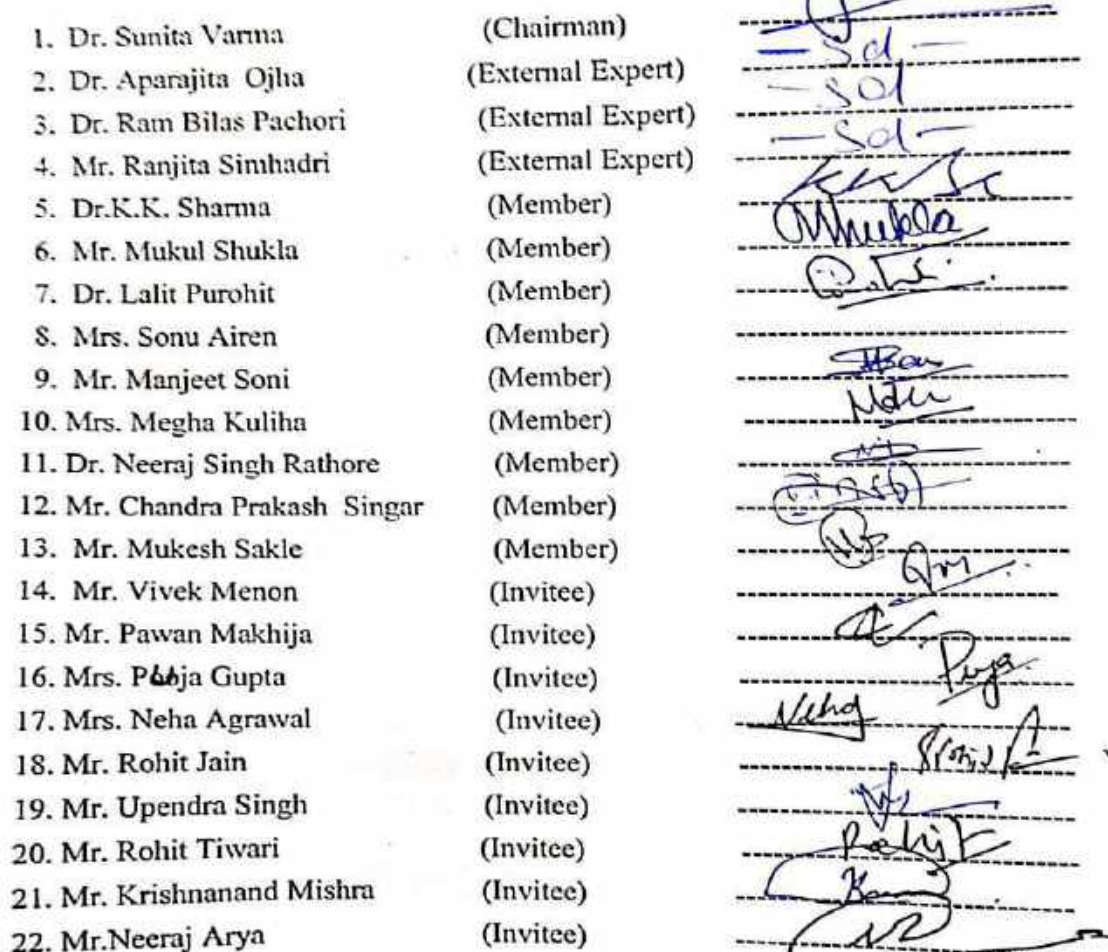 1. Dr. Sunita Varma (Chairman)
2. Dr. Aparajita Ojha (External Expert) - Sd -
3. Dr. Ram Bilas Pachori (External Expert) - Sd
4. Mr. Ranjita Simhadri (External Expert) - Sd -
5. Dr.K.K. Sharma (Member)
6. Mr. Mukul Shukla (Member) MShukla
7. Dr. Lalit Purohit (Member)
8. Mrs. Sonu Airen (Member)
9. Mr. Manjeet Soni (Member)
10. Mrs. Megha Kuliha (Member)
11. Dr. Neeraj Singh Rathore (Member)
12. Mr. Chandra Prakash Singar (Member)
13. Mr. Mukesh Sakle (Member)
14. Mr. Vivek Menon (Invitee)
15. Mr. Pawan Makhija (Invitee)
16. Mrs. Pooja Gupta (Invitee) Puja
17. Mrs. Neha Agrawal (Invitee) Neha
18. Mr. Rohit Jain (Invitee)
19. Mr. Upendra Singh (Invitee)
20. Mr. Rohit Tiwari (Invitee)
21. Mr. Krishnanand Mishra (Invitee)
22. Mr.Neeraj Arya (Invitee)